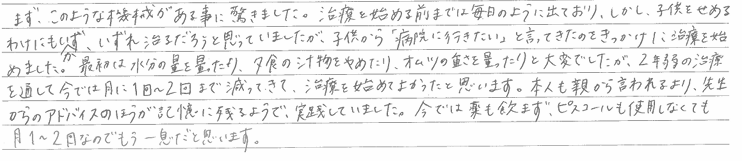 まず、このような機械がある事に驚きました。治療を始める前までは毎日のように出ており、しかし、子供をせめる
わけにもいかず、いずれ治るだろうと思っていましたが、子供から「病院に行きたい」と言ってきたのをきっかけに治療を始
めました。最初は水分の量を量ったり、夕食の汁物をやめたり、オムツの重さを量ったりと大変でしたが、2年弱の治療
を通して今では月に1回～2回まで減ってきて、治療を始めてよかったと思います。本人も親から言われるより、先生
からのアドバイスのほうが記憶に残るようで、実践していました。今では薬も飲まず、ピスコールも使用しなくても
月1～2回なのでもう一息だと思います。